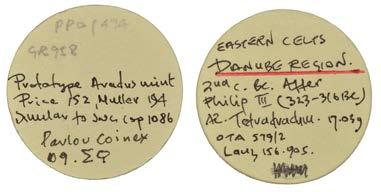 PPD/494
GR958
Prototype Aradus mint
Price 152, Muller 194
Similar to
Pavlov Coinex
09. ΣQ
EASTERN CELTS
DANUBE REGION.
2nd c. BC. After
Philip III (323-316BC)
AR. Tetradradm. 17.03g
OTA 579/2
Lanz 156.905.